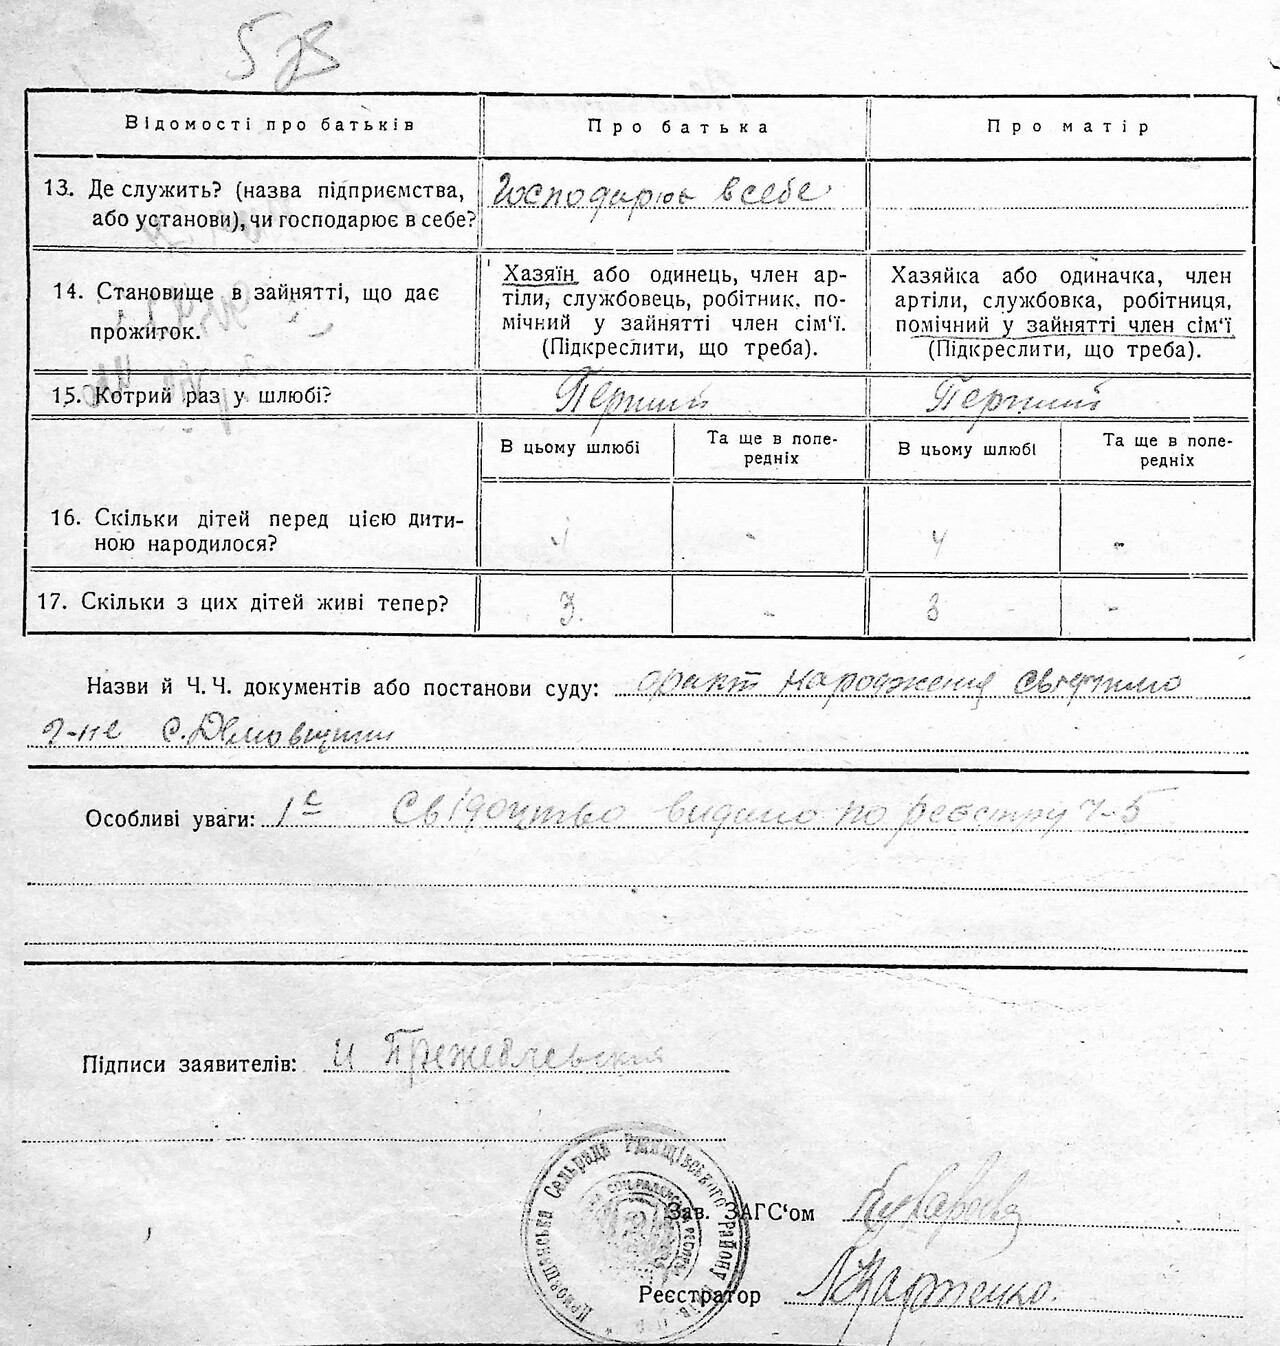 578
Відомості про батьків
Про батька
Про матір
13. Де служить? (назва підприємства,
або установи), чи господарює в себе?
Господарює в себе
14. Становище в зайнятті, що дає
прожиток.
Хазяїн або одинець, член ар-
тіли, службовець, робітник. по-
мічний у зайнятті член сім'ї.
(Підкреслити, що треба).
Хазяйка або одиначка, член
артіли, службовка, робітниця,
помічний у зайнятті член сім'ї
(Підкреслити, що треба).
15. Котрий раз у шлюбі?
Перший
Перший
В цьому шлюбі
Та ще в попе-
редніх
В цьому шлюбі
Та ще в попе-
редніх
16. Скільки дітей перед цією дити-
ною народилося?
4 - 4 -
17. Скільки з цих дітей живі тепер?
3. - 3 -
Назви й Ч. Ч. документів або постанови суду: факт народження
с.
Особливі уваги: 1 с Свідоцтво видано по реєстру ч-5
Підписи заявителів: И
Сельрада Ржищівського району
Зав. ЗАГС'ом
Реєстратор